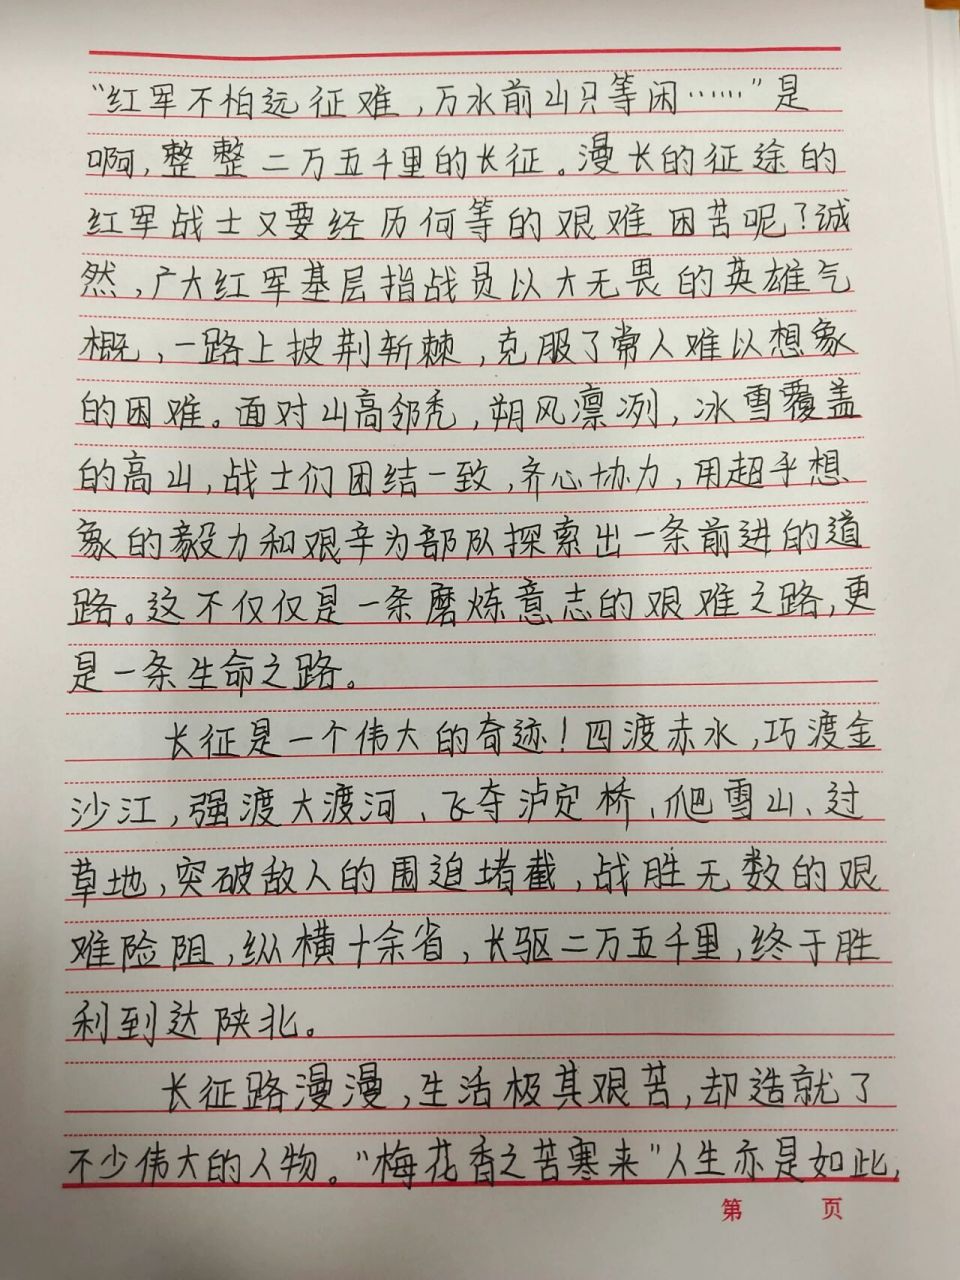 “红军不怕远征难，万水前山只等闲……”是
啊，整整二万五千里的长征。漫长的征途的
红军战士又要经历何等的艰难困苦呢？诚
然，广大红军基层指战员以大无畏的英雄气
概，一路上披荆斩棘，克服了常人难以想象
的困难。面对山高邻秃，朔风凛冽，冰雪覆盖
的高山，战士们团结一致，齐心协力，用超乎想
象的毅力和艰辛为部队探索出一条前进的道
路。这不仅仅是一条磨炼意志的艰难之路，更
是一条生命之路。
长征是一个伟大的奇迹！四渡赤水，巧渡金
沙江，强渡大渡河、飞夺泸定桥、爬雪山、过
草地，突破敌人的围追堵截，战胜无数的艰
难险阻，纵横十余省，长驱二万五千里，终于胜
利到达陕北。
长征路漫漫，生活极其艰苦，却造就了
不少伟大的人物。“梅花香之苦寒来”人生亦是如此，
第 页